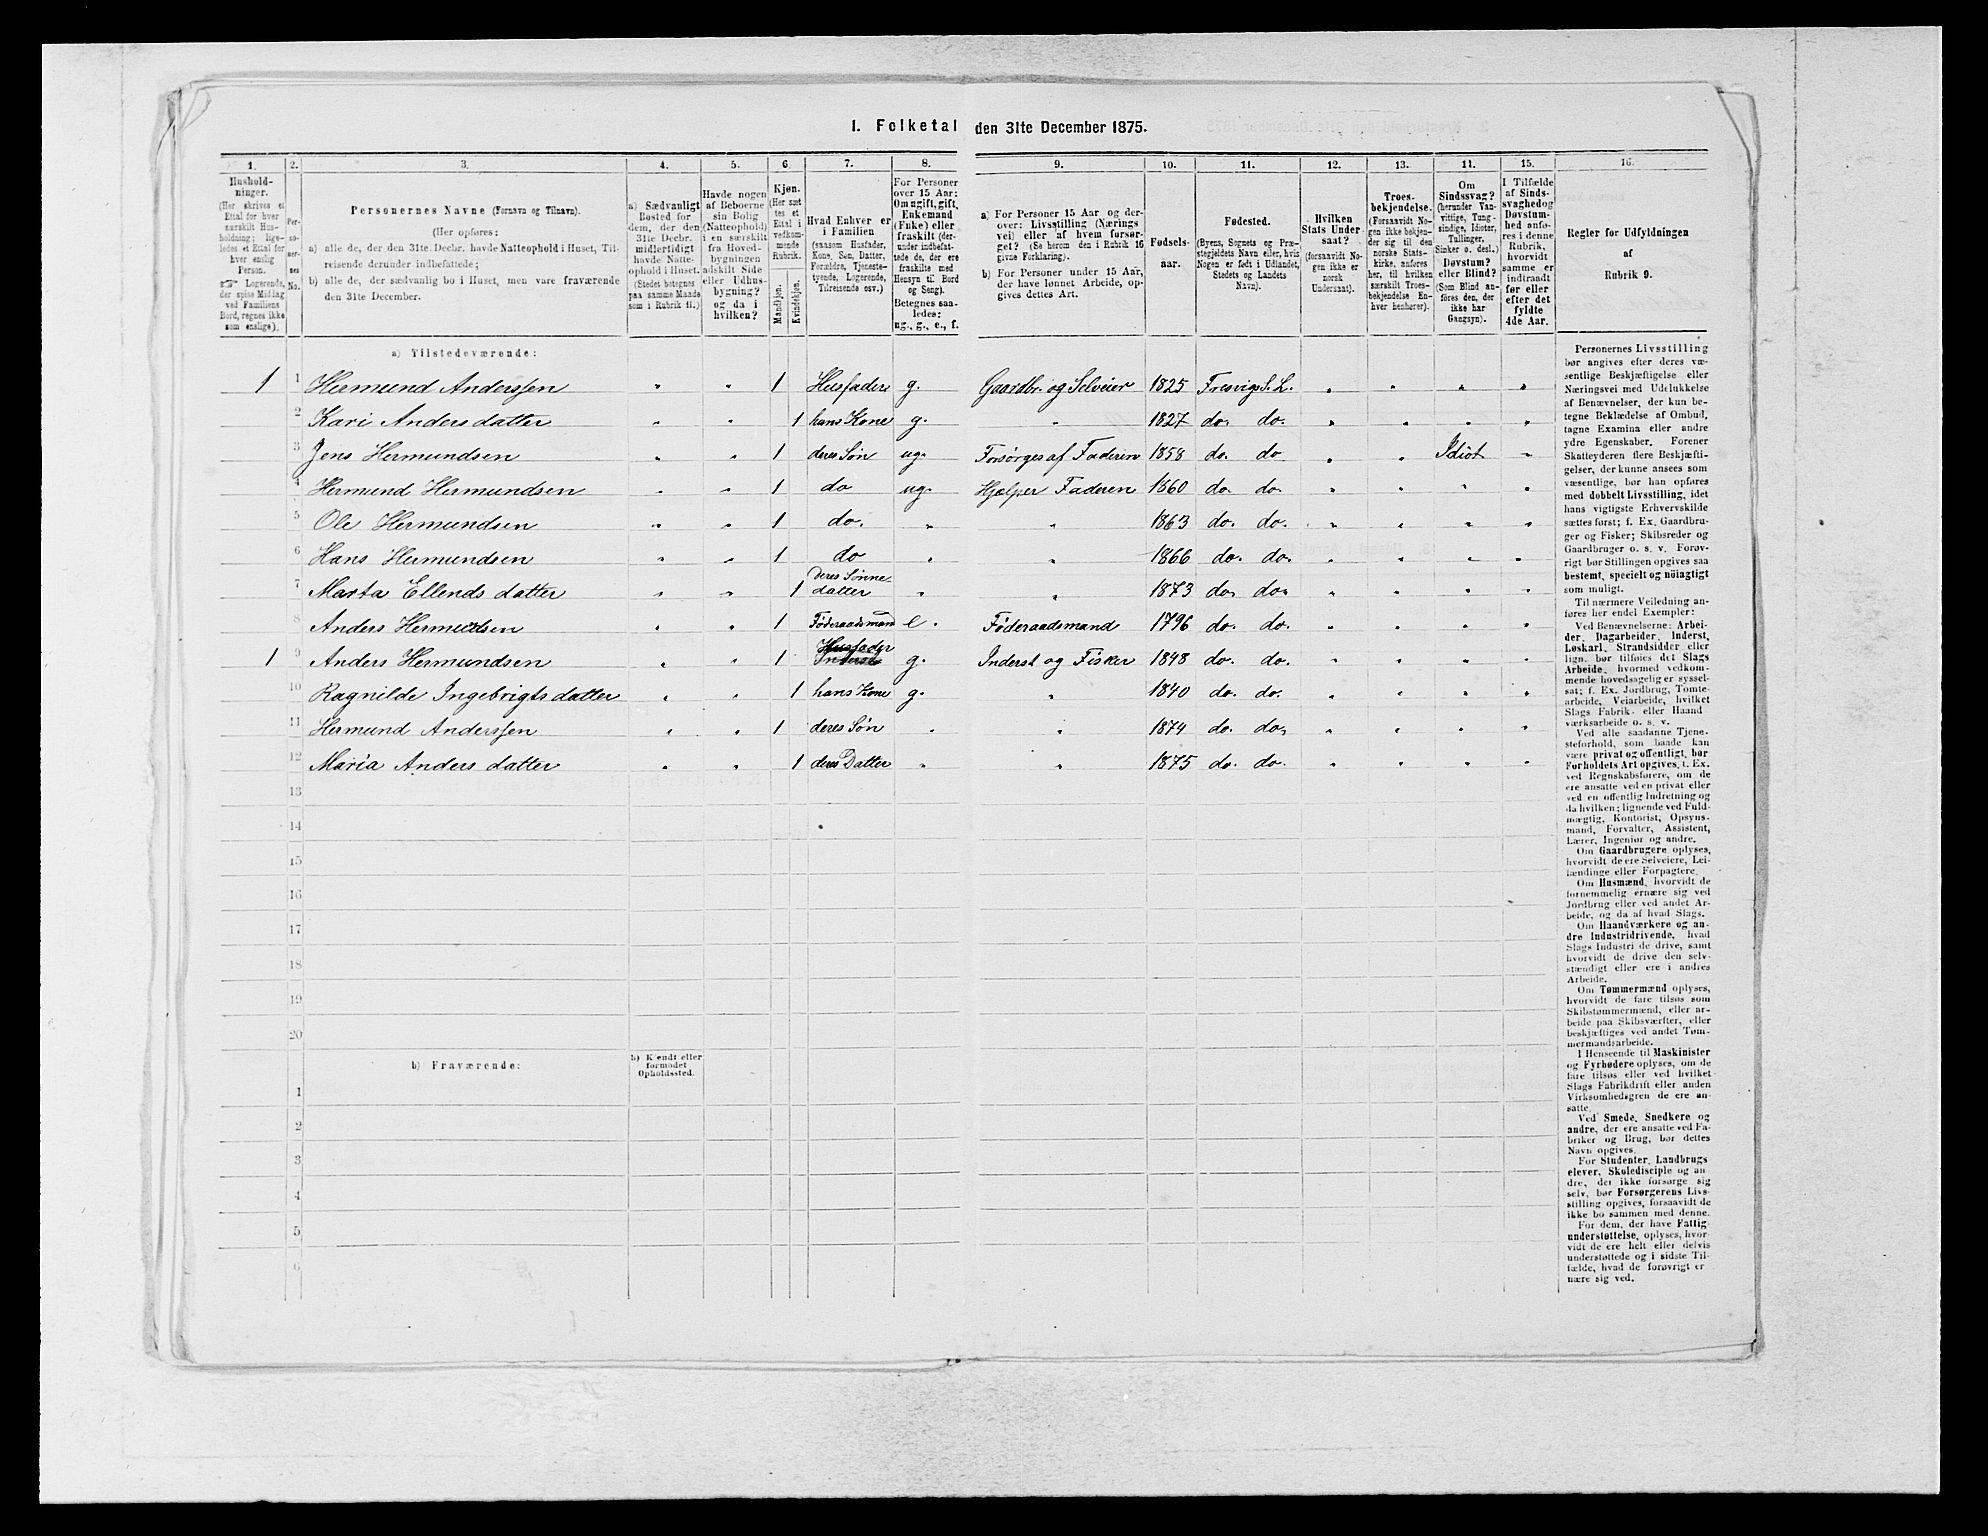 1. Folketal den 31te December 1875.
1. 2. 3. 4. 5. 6. 7. 8. 9. 10. 11. 12. 13. 14. 15. 16.
Hushold-
ninger.
(Her skrives et
Ettal for hver
særskilt Hus-
holdning; lige-
ledes et Ettal for
hver enslig
Person.
☞ Logerende,
der spise Middag
ved Familiens
Bord, regnes ikke
som enslige).
Per-
so-
ner-
nes
No.
Personernes Navne (Fornavn og Tilnavn).
(Her opføres:
a) alle de, der den 31te. Decbr. havde Natteophold i Huset, Til-
reisende derunder indbefattede;
b) alle de, der sædvanlig bo i Huset, men vare fraværende
den 31te December.
a) Sædvanligt
Bosted for
dem, der den
31te Decbr.
midlertidigt
havde Natte-
ophold i Huset.
(Stedet betegnes
paa samme Maade
som i Rubrik 11.)
Havde nogen
af Beboerne
sin Bolig
(Natteophold)
i en særskilt
fra Hoved-
bygningen
adskilt Side
eller Udhus-
bygning?
og da i
hvilken?
Kjøn.
(Her sæt
tes et
Ettal i
vedkom-
mende
Rubrik.
Mandkjøn.
Kvindekjøn.
Hvad Enhver er
i Familien
(saasom Husfader,
Kone, Søn, Datter,
Forældre, Tjeneste-
tyende, Logerende,
Tilreisende osv.)
For Personer
over 15 Aar:
Om ugift, gift,
Enkemand
(Enke) eller
fraskilt (der-
under indbefat-
tede de, der ere
fraskilte med
Hensyn til Bord
og Seng).
Betegnes saa-
ledes:
ug., g., e., f.
a) For Personer 15 Aar og der-
over: Livsstilling (Nærings
vei) eller af hvem forsør-
get? (Se herom den i Rubrik 16
givne Forklaring).
b) For Personer under 15 Aar,
der have lønnet Arbeide, op-
gives dettes Art.
Fødsels-
aar.
Fødested.
(Byens, Sognets og Præ-
stegjeldets Navn eller, hvis
Nogen er født i Udlandet,
Stedets og Landets
Navn).
Hvilken
Stats Under-
saat?
(forsaavidt No-
gen ikke er
norsk
Undersaat).
Troes-
bekjendelse.
(Forsaavidt No-
gen ikke bekjen-
der sig til den
norske Stats-
kirke, anføres
her, til hvilken
særskilt Troes-
bekjendelse En-
hver henhører).
Om
Sindssvag?
(herunder Van-
vittige, Tung-
sindige, Idioter,
Tullinger,
Sinker o. desl.)
Døvstum?
eller Blind?
(Som Blind an-
føres den, der
ikke har
Gangsyn).
I Tilfælde
af Sinds-
svaghed og
Døvstum-
hed anfø-
res i denne
Rubrik,
hvorvidt
samme er
indtraadt
før eller
efter det
fyldte
4de Aar.
Regler for Udfyldningen
af
Rubrik 9.
a) Tilstedeværende:
1 1 Hermund Anderssen " " 1 Husfader g. Gaardbr. og Selveier 1825 Fresvig S. L. " " " "
2 Kari Andersdatter " " 1 hans Kone g. " 1827 do. do. " " " "
3 Jens Hermundsen " " 1 deres Søn ug. Forsørges af Faderen 1858 do. do " " Idiot "
4 Hermund Hermundsen " " 1 do ug. Hjælper Faderen 1860 do. do. " " " "
5 Ole Hermundsen " " 1 do. " " 1863 do. do. " " " "
6 Hans Hermundsen " " 1 do " " 1866 do. do. " " " "
7 Marta Ellends datter " " 1 deres Sønne datter " " 1873 do. do. " " " "
8 Anders Hermundsen " " 1 Föderaadsmand e. Föderaadsmand 1796 do. do. " " " "
1 9 Anders Hermundsen " " 1 Husfader Inderst g. Inderst og Fisker 1848 do. do. " " " "
10 Ragnilde Ingebrigts datter " " 1 hans Kone g. " 1840 do. do. " " " "
11 Hermund Anderssen " " 1 deres Søn " " 1874 do. do. " " " "
12 Maria Anders datter " " 1 deres Datter " " 1875 do. do. " " " "
13
14
15
16
17
18
19
20
b) Fraværende:
b) Kjendt eller
formodet
Opholdssted.
1
2
3
4
5
6
Personernes Livsstilling
bør angives efter deres væ-
sentlige Beskjæftigelse eller
Næringsvei med Udelukkelse
af Benævnelser, der kun be-
tegne Beklædelse af Ombud,
tagne Examina eller andre
ydre Egenskaber. Forener
Skatteyderen flere Beskjæfti-
gelser, der kunne ansees som
væsentlige, bør han opføres
med dobbelt Livsstilling, idet
hans vigtigste Erhvervskilde
sættes først; f. Ex. Gaardbru-
ger og Fisker; Skibsreder og
Gaardbruger o. s. v. Forøv-
rigt bør Stillingen opgives saa
bestemt, specielt og nöiagtigt
som muligt.
Til nærmere Veiledning an-
føres her endel Exempler:
Ved Benævnelserne: Arbei-
der, Dagarbeider, Inderst,
Løskarl, Strandsidder eller
lign. bør tilføies det Slags
Arbeide, hvormed vedkom-
mende hovedsagelig er syssel-
sat; f. Ex. Jordbrug, Tomte-
arbeide, Veiarbeide, hvilket
Slags Fabrik- eller Haand
værksarbeide o. s. v.
Ved alle saadanne Tjene-
steforhold, som baade kan
være privat og offentligt, bør
Forholdets Art opgives, t. Ex.
ved Regnskabsførere, om de
ere ansatte ved en privat eller
ved en offentlig Indretning og
da hvilken; lignende ved Fuld-
mægtig, Kontorist, Opsyns-
mand, Forvalter, Assistent,
Lærer, Ingeniør og andre.
Om Gaardbrugere oplyses,
hvorvidt de ere Selveiere, Lei-
lændinge eller Forpagtere.
Om Husmænd, hvorvidt de
fornemmelig ernære sig ved
Jordbrug eller ved andet Ar-
beide, og da af hvad Slags.
Om Haandværkere og an-
dre Industridrivende, hvad
Slags Industri de drive, samt
hvorvidt de drive den selv-
stændigt eller ere i andres
Arbeide.
Om Tømmermænd oplyses,
hvorvidt de fare tilsøs som
Skibstømmermænd, eller ar-
beide paa Skibsværfter, eller
beskjæftiges ved andet Tøm-
mermandsarbeide.
I Henseende til Maskinister
og Fyrbødere oplyses, om de
fare tilsøs eller ved hvilket
Slags Fabrikdrift eller anden
Virksomhedsgren de ere an-
satte.
Ved Smede, Snedkere og
andre, der ere ansatte ved Fa-
briker og Brug, bør dettes
Navn opgives.
For Studenter, Landbrugs
elever, Skoledisciple og an
dre, der ikke forsørge sig
selv, bør Forsørgerens Livs-
stilling opgives, forsaavidt de
ikke bo sammen med denne.
For dem, der have Fattig-
understøttelse, oplyses, hvor-
vidt de ere helt eller delvis
understøttede og i sidste Til-
fælde, hvad de forøvrigt er
nære sig ved.